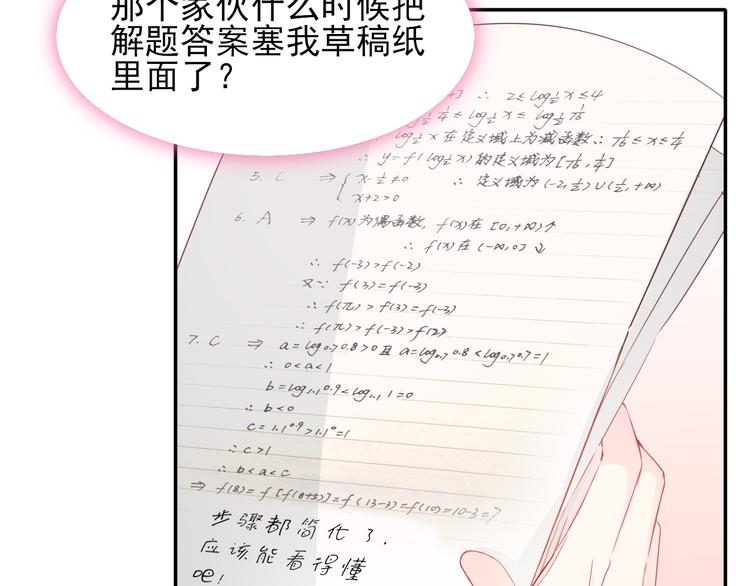 那个家伙什么时候把
解题答案塞我草稿纸
里面了？
] ∴ 2≤log½x≤4
¼≤log½x≤log½1/16
log½x在定义域上为减函数∴1/16≤x≤¼
∴ y=f(log½x)的定义域为[1/16,¼]
5. C ⇒ { x-½≠0 ∴ 定义域为(-2,½)∪(½,+∞)
x+2>0
6. A ⇒ f(x)为偶函数, f(x)在[0,+∞)↑
∴ f(x)在(-∞,0]↓
∴ f(-3)>f(-2)
又∵ f(3)=f(-3)
∴ f(π)>f(3)=f(-3)
∴ f(π)>f(-3)>f(2)
7. C ⇒ a=log0.7 0.8>0且 a=log0.7 0.8<log0.7 0.7=1
∴ 0<a<1
b=log1.1 0.9<log1.1 1=0
∴ b<0
c=1.1^0.9>1.1^0=1
∴ c>1
∴ b<a<c
⇒ f(8)=f[f(8+5)]=f(13-3)=f(10)=10-3=7
步骤都简化了,
应该能看得懂
吧!